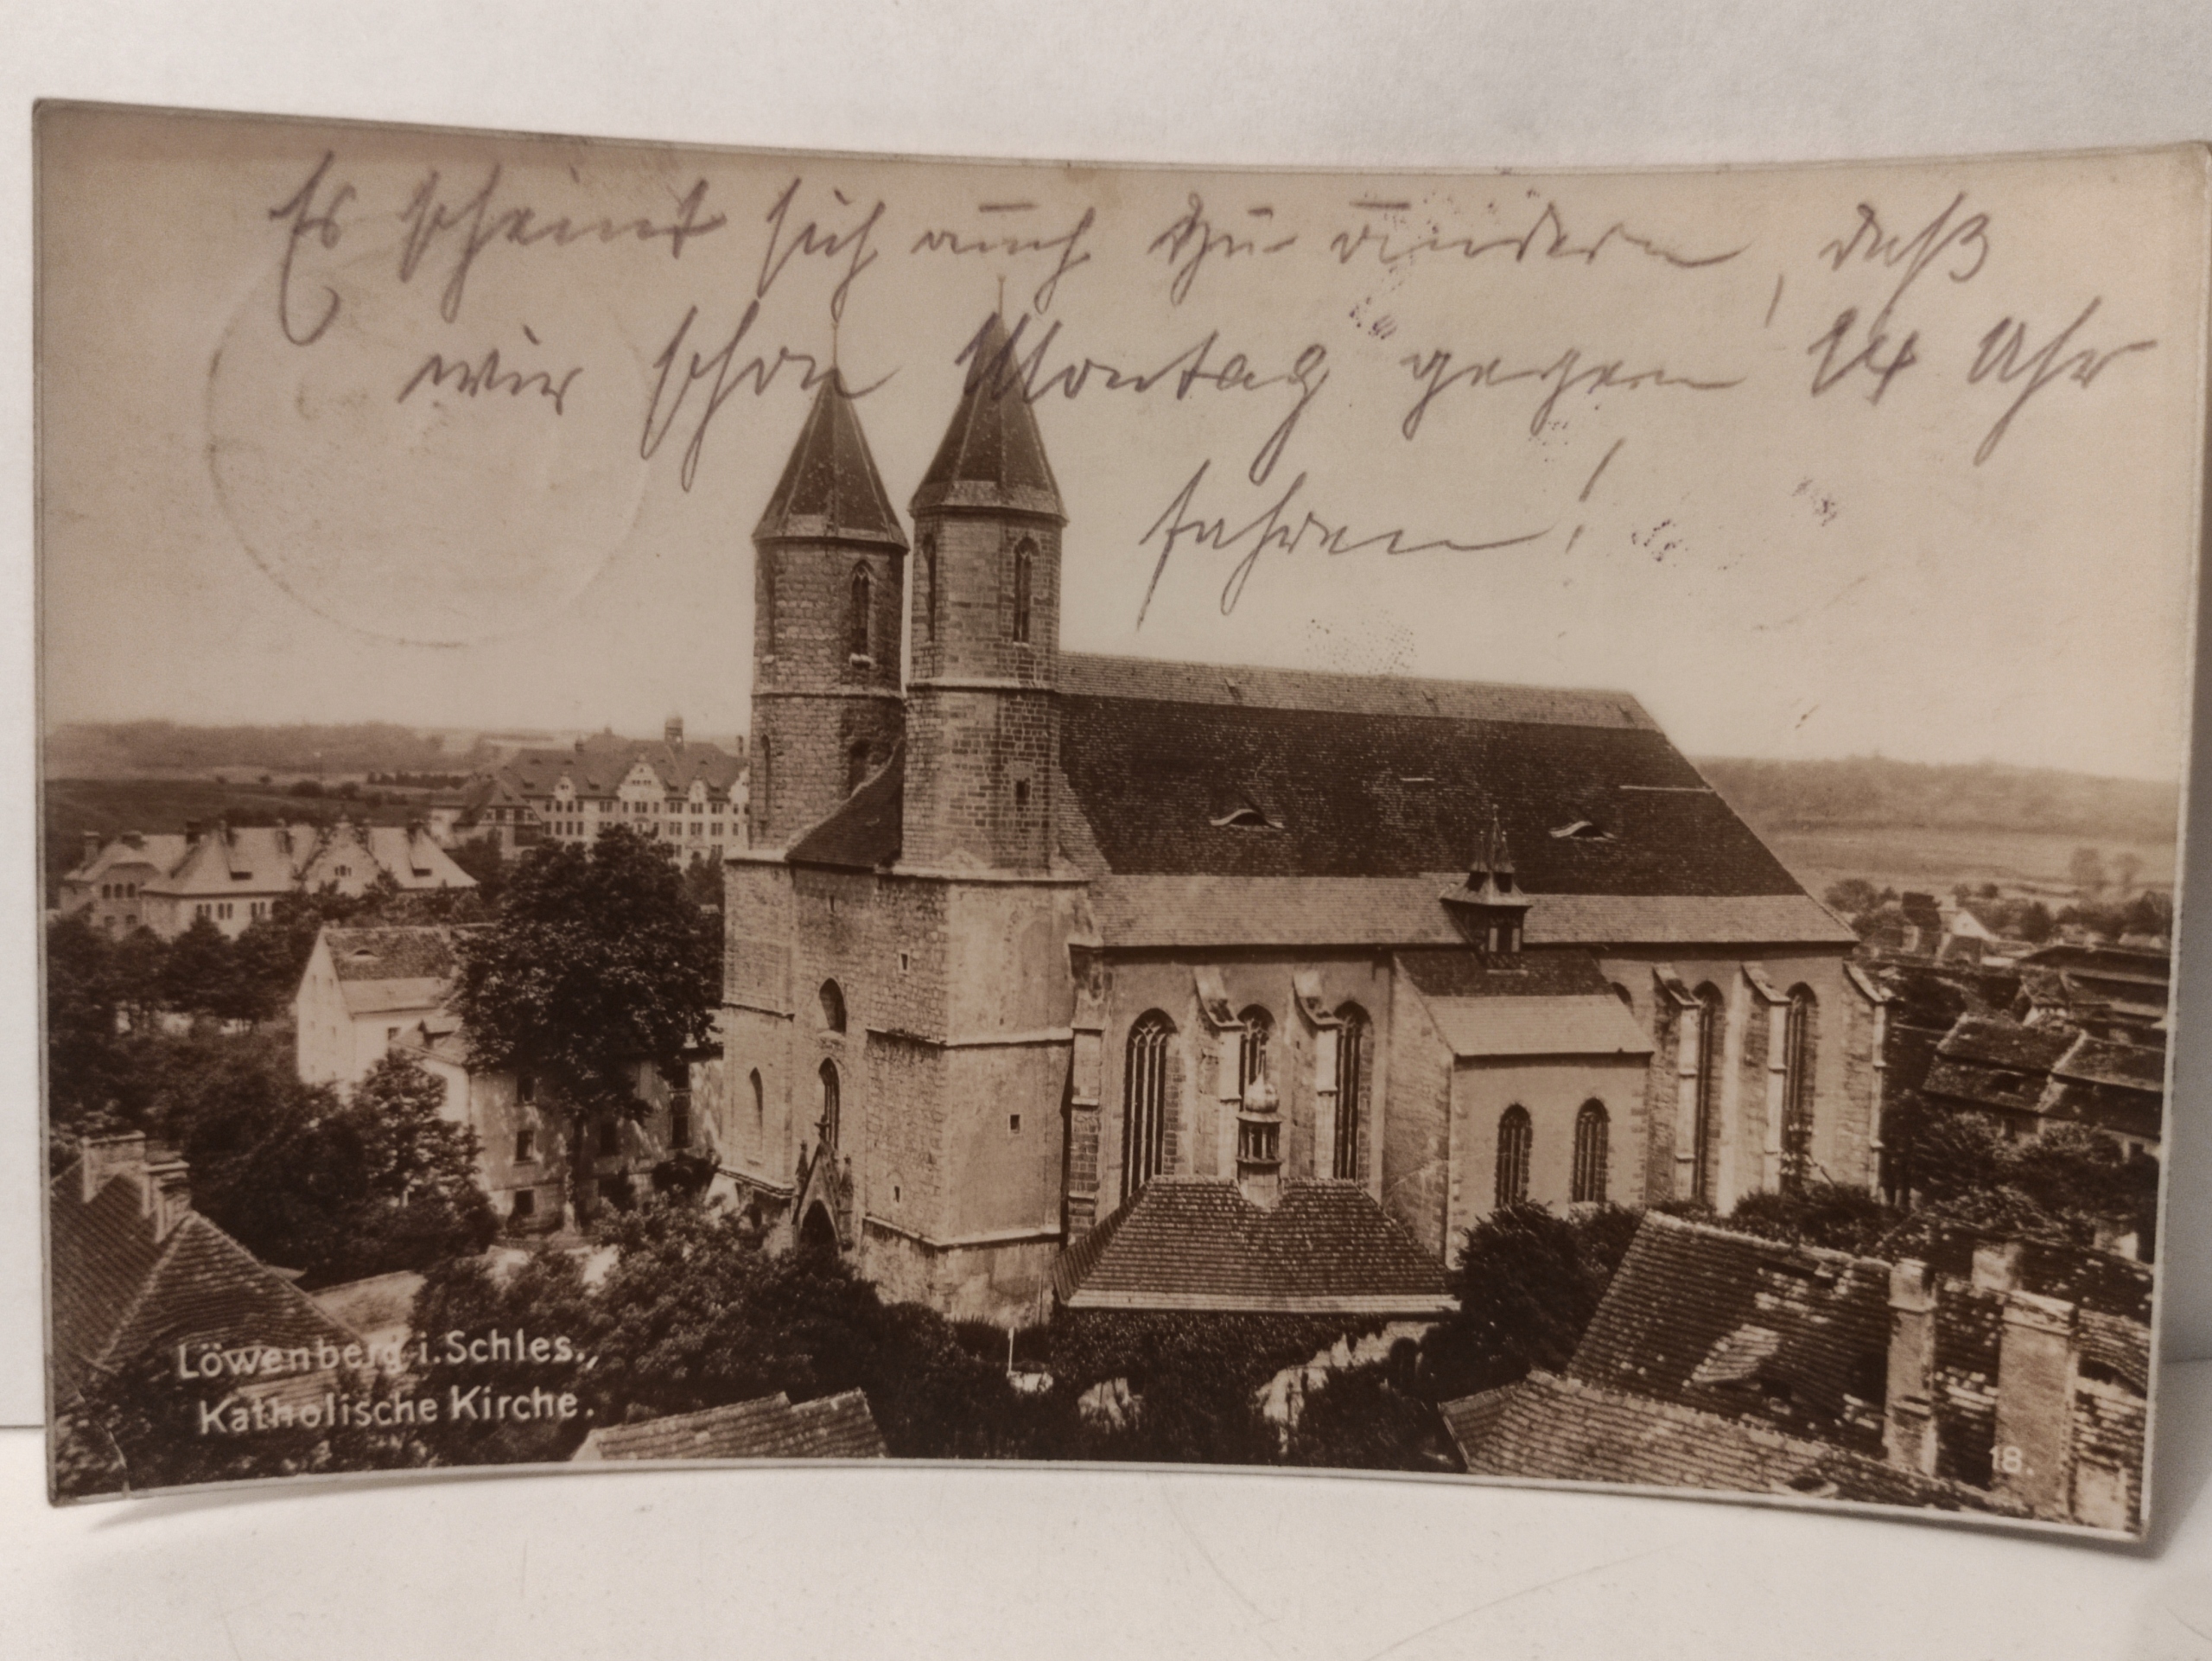 Es scheint sich auch zu ändern, daß
wir schon Montag gegen 14 Uhr
fahren!
Löwenberg i. Schles.,
Katholische Kirche.
18.